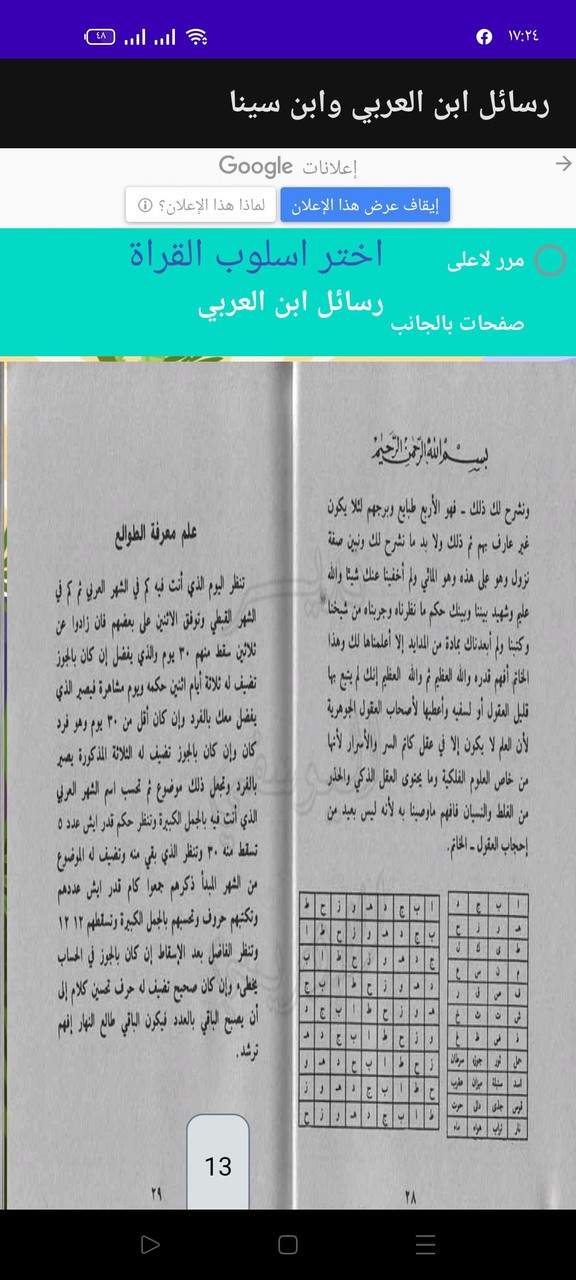 ١٧:٢٤
٤٨
رسائل ابن العربي وابن سينا
إعلانات Google
إيقاف عرض هذا الإعلان
لماذا هذا الإعلان؟
مرر لاعلى
اختر اسلوب القراة
رسائل ابن العربي
صفحات بالجانب
بسم الله الرحمن الرحيم
ونشرح لك ذلك - فهو الأربع طبايع وبرجهم لئلا يكون
غير عارف بهم ثم ذلك ولا بد ما نشرح لك ونبين صفة
نزول وهو على هذه وهو المائي ولم أخفينا عنك شيئا والله
عليم وشهيد بيننا وبينك حكم ما نظرناه وجربناه من شيخنا
وكتبنا ولم أبعدناك بمادة من المدايد إلا أعلمناها لك وهذا
الخاتم أفهم قدره والله العظيم ثم والله العظيم إنك لم يتبع بها
قليل العقول أو لسفيه وأعطيها لأصحاب العقول الجوهرية
لأن العلم لا يكون إلا في عقل كاتم السر والأسرار لأنها
من خاص العلوم الفلكية وما يحتوى العقل الذكي والحذر
من الغلط والنسيان فافهم ماوصينا به لأنه ليس بعيد من
إحجاب العقول - الخاتم.
ا ب ج د
هـ و ز ح
ط ى ك ل
م ن س ع
ف ص ق ر
ش ت ث خ
ذ ض ظ غ
حمل ثور جوزه سرطان
اسد سنبلة ميزان عقرب
قوس جدى دالى حوت
نار تراب هواء ماء
ا ب ج د هـ و ز ح ط
ب ج د هـ و ز ح ط ا
ج د هـ و ز ح ط ا ب
د هـ و ز ح ط ا ب ج
هـ و ز ح ط ا ب ج د
و ز ح ط ا ب ج د هـ
ز ح ط ا ب ج د هـ و
ح ط ا ب ج د هـ و ز
ط ا ب ج د هـ و ز ح
٢٨
علم معرفة الطوالع
تنظر اليوم الذي أنت فيه كم في الشهر العربي ثم كم في
الشهر القبطي وتوفق الاثنين على بعضهم فان زادوا عن
ثلاثين سقط منهم ٣٠ يوم والذي يفضل إن كان بالجوز
تضيف له ثلاثة أيام اثنين حكمه ويوم مشاهرة فيصير الذي
يفضل معك بالفرد وإن كان أقل من ٣٠ يوم وهو فرد
كان وإن كان بالجوز تضيف له الثلاثة المذكورة يصير
بالفرد وتجعل ذلك موضوع ثم تحسب اسم الشهر العربي
الذي أنت فيه بالجمل الكبيرة وتنظر حكم قدر ايش عدد ٥
تسقط منه ٣٠ وتنظر الذي بقي منه وتضيف له الموضوع
من الشهر المبدأ ذكرهم جمعوا كام قدر ايش عددهم
وتكتبهم حروف وتحسبهم بالجمل الكبيرة وتسقطهم ١٢ ١٢
وتنظر الفاضل بعد الإسقاط إن كان بالجوز في الحساب
يخطىء وإن كان صحيح تضيف له حرف تحسين كلام إلى
أن يصبح الباقي بالعدد فيكون الباقي طالع النهار إفهم
ترشد.
٢٩
13